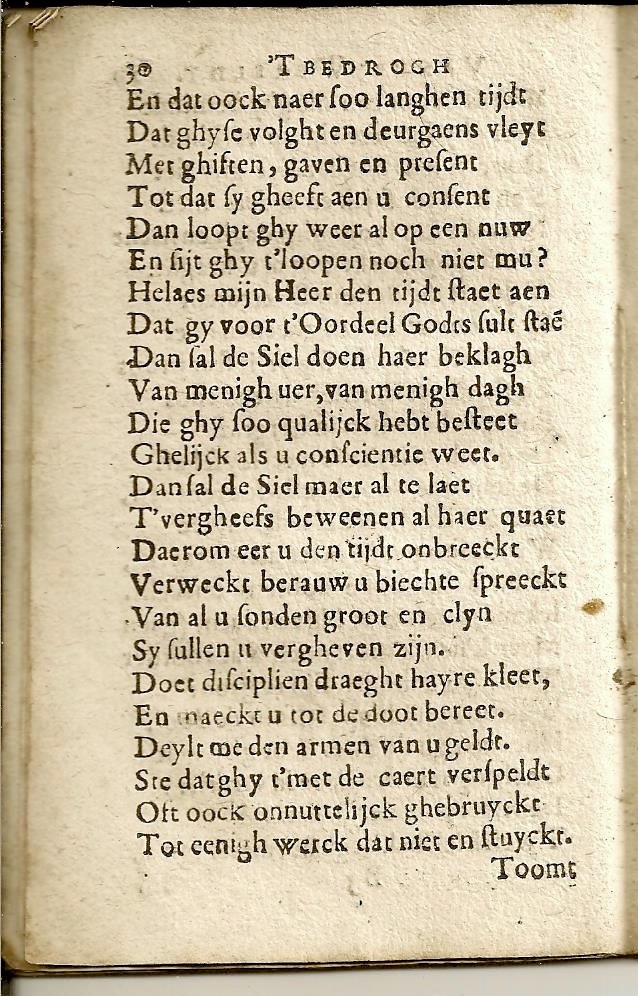 30 'T BEDROGH
En dat oock naer ſoo langhen tijdt
Dat ghyſe volght en deurgaens vleyt
Met ghiften, gaven en preſent
Tot dat ſy gheeft aen u conſent
Dan loopt ghy weer al op een nuw
En ſijt ghy t'loopen noch niet mu?
Helaes mijn Heer den tijdt ſtaet aen
Dat gy voor t'Oordeel Godts ſult ſtaē
Dan ſal de Siel doen haer beklagh
Van menigh uer, van menigh dagh
Die ghy ſoo qualijck hebt beſteet
Ghelijck als u conſcientie weet.
Dan ſal de Siel maer al te laet
T'vergheefs beweenen al haer quaet
Daerom eer u den tijdt onbreeckt
Verweckt berauw u biechte ſpreeckt
Van al u ſonden groot en clyn
Sy ſullen u vergheven zijn.
Doet diſciplien draeght hayre kleet,
En maeckt u tot de doot bereet.
Deylt me den armen van u geldt.
Ste dat ghy t'met de caert verſpeldt
Oft oock onnuttelijck ghebruyckt
Tot eenigh werck dat niet en ſtuyckt.
Toomt